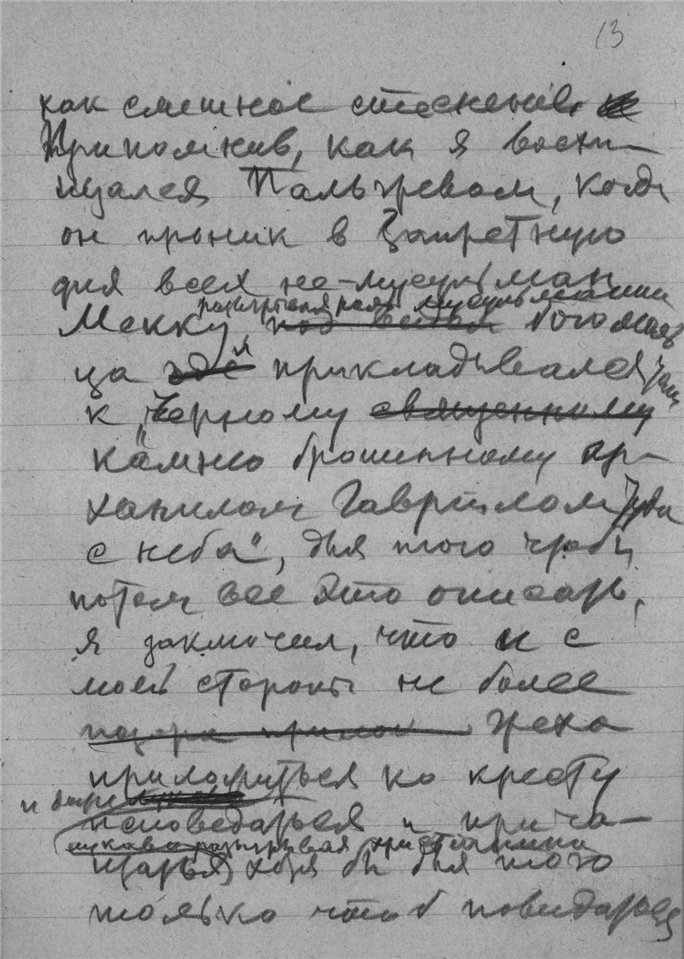 13
как смешное стеснение.
Припомнив, как я восхи-
щался Пальгревом, когда
он проник в Запретную
для всех не-мусульман
разыгрывая роль мусульманина
Мекку, под видом богомоль
ца где и прикладывался там
к „Черному священному
камню брошенному ар-
хангелом Гавриилом
с неба", для того чтобы
потом все это описать,
я заключил, что и с
моей стороны не более
позора греха
приложиться ко кресту
и
исповедаться и прича-
лукаво разыгрывая христианина
щаться хотя бы для того
только чтоб повидаться